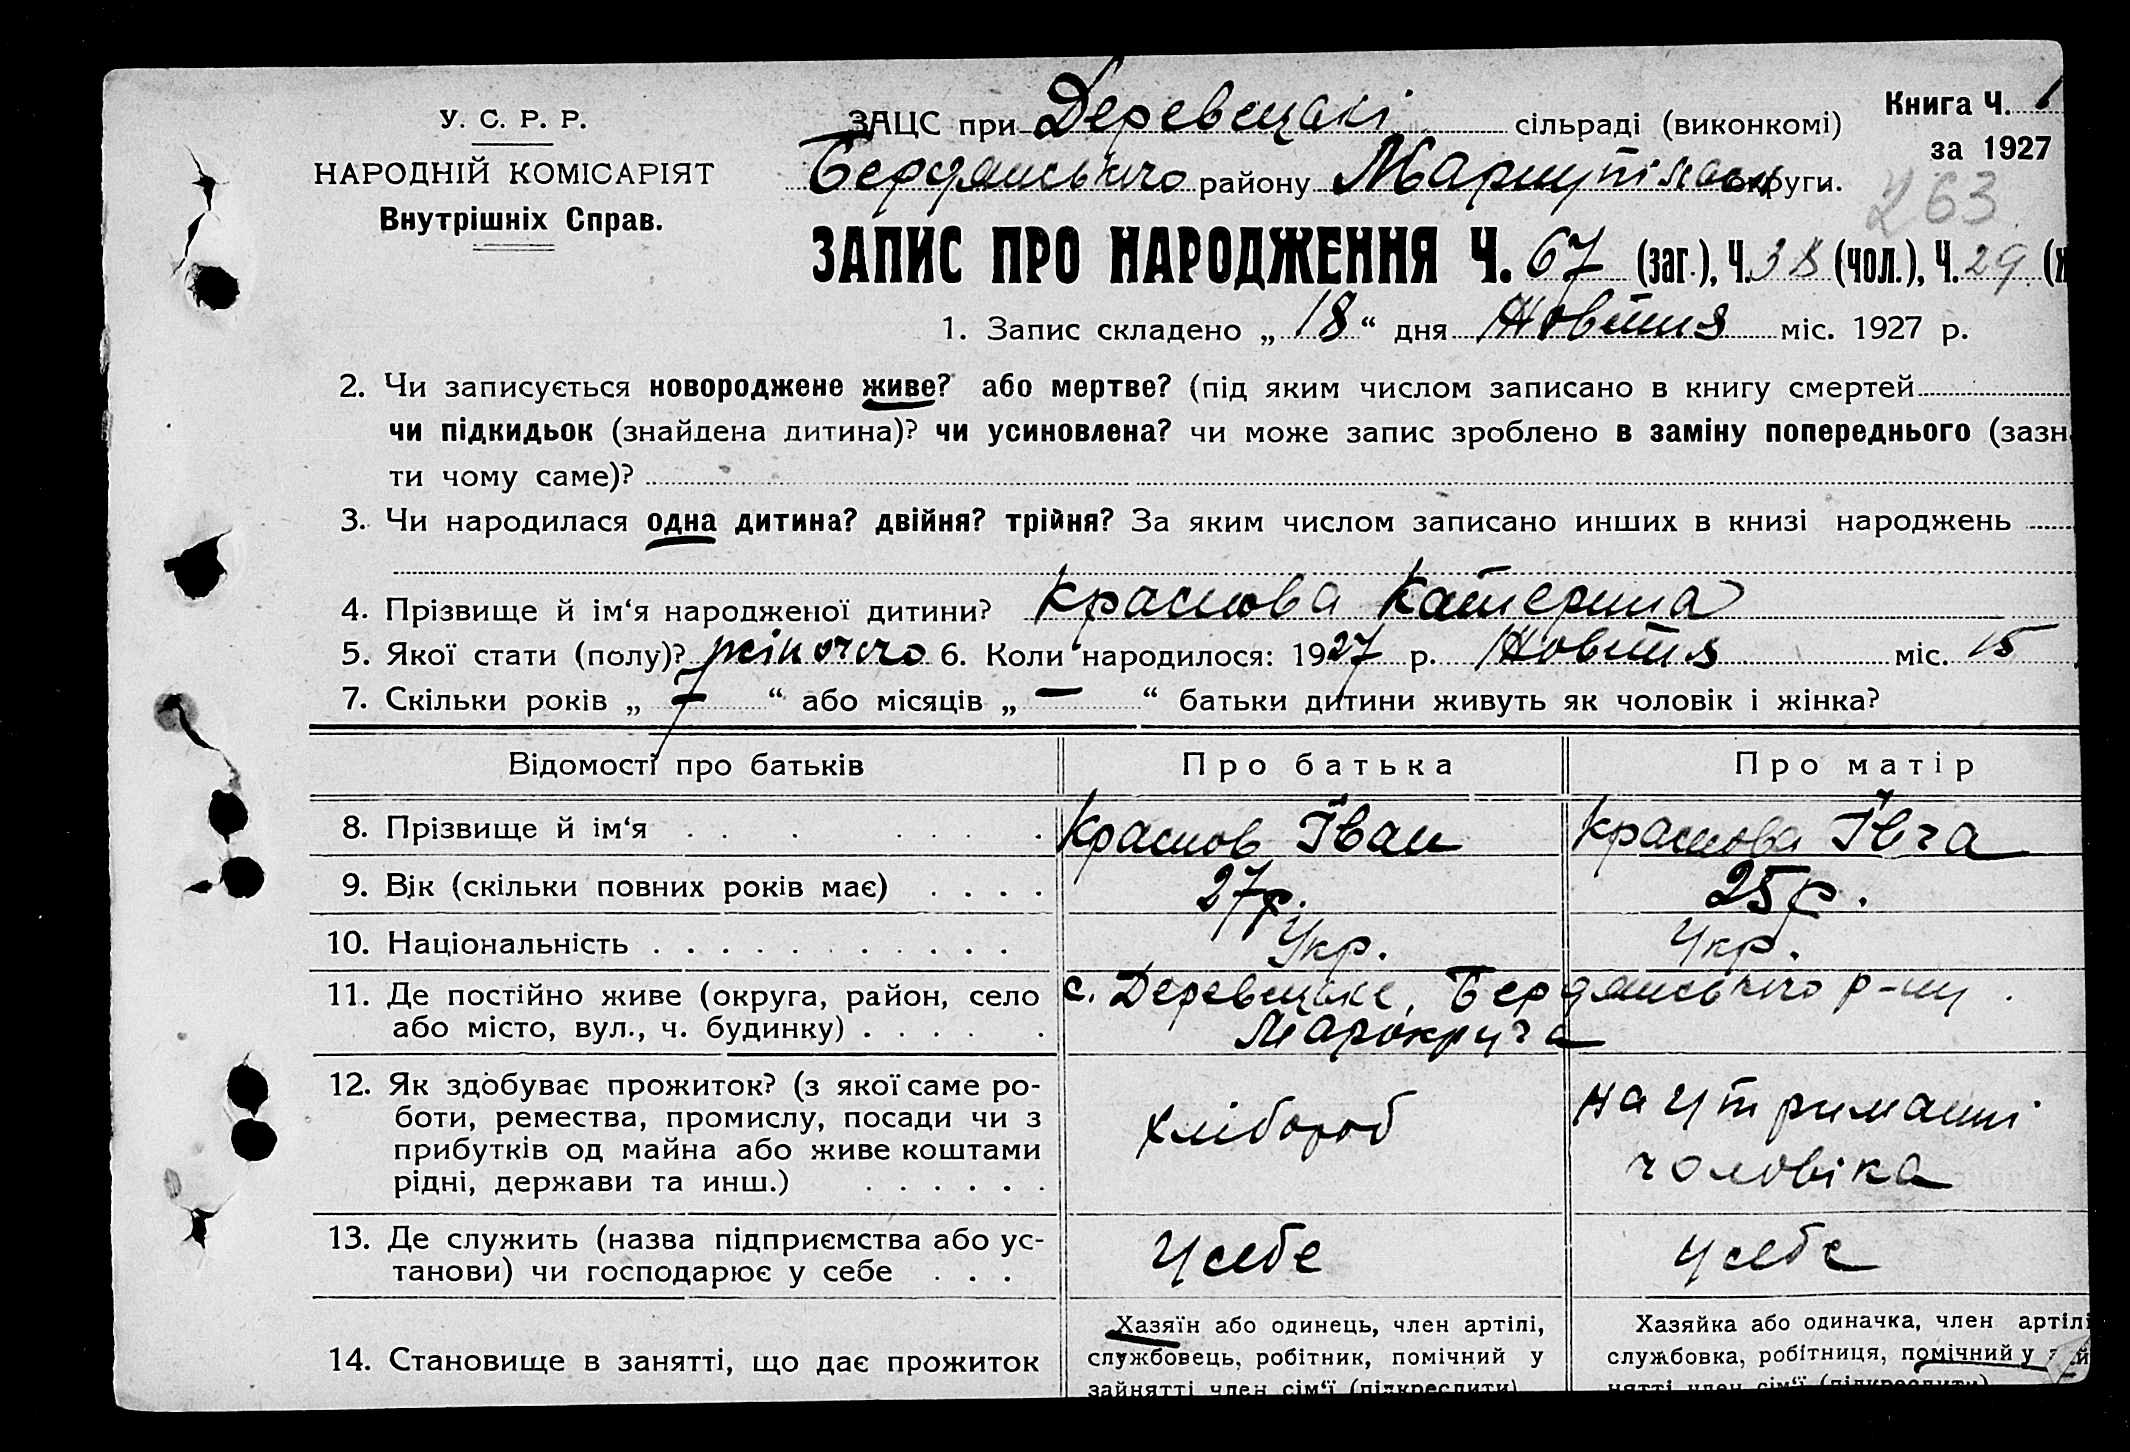 У. С. Р. Р.
НАРОДНІЙ КОМІСАРІЯТ
Внутрішніх Справ.
ЗАЦС при Деревецькі сільраді (виконкомі)
Бердянського району Маріупільськ округи.
Книга Ч. 1
за 1927
263
ЗАПИС ПРО НАРОДЖЕННЯ Ч. 67 (заг.), Ч. 38 (чол.), Ч. 29 (ж
1. Запис складено „ 18 “ дня Жовтня міс. 1927 р.
2. Чи записується новороджене живе? або мертве? (під яким числом записано в книгу смертей
чи підкидьок (знайдена дитина)? чи усиновлена? чи може запис зроблено в заміну попереднього (зазн
ти чому саме)?
3. Чи народилася одна дитина? двійня? трійня? За яким числом записано инших в книзі народжень
4. Прізвище й ім‘я народженої дитини? Краснова Катерина
5. Якої стати (полу)? жіночого 6. Коли народилося: 1927 р. Жовтня міс. 15
7. Скільки років „ 7 “ або місяців „ — “ батьки дитини живуть як чоловік і жінка?
Відомості про батьків Про батька Про матір
8. Прізвище й ім‘я Краснов Іван Краснова Ївга
9. Вік (скільки повних років має) 27р. 25р.
10. Національність Укр. Укр.
11. Де постійно живе (округа, район, село с. Деревецьке, Бердянського р-ну.
або місто, вул., ч. будинку) Марокруга
12. Як здобуває прожиток? (з якої саме ро-
боти, ремества, промислу, посади чи з
прибутків од майна або живе коштами
рідні, держави та инш.)
хлібороб
на утриманні
чоловіка
13. Де служить (назва підприємства або ус-
танови) чи господарює у себе
у себе у себе
14. Становище в занятті, що дає прожиток
Хазяїн або одинець, член артілі,
службовець, робітник, помічний у
зайнятті член сім‘ї (підкреслити)
Хазяйка або одиначка, член артілі
службовка, робітниця, помічний у зай
нятті член сім‘ї (підкреслити)